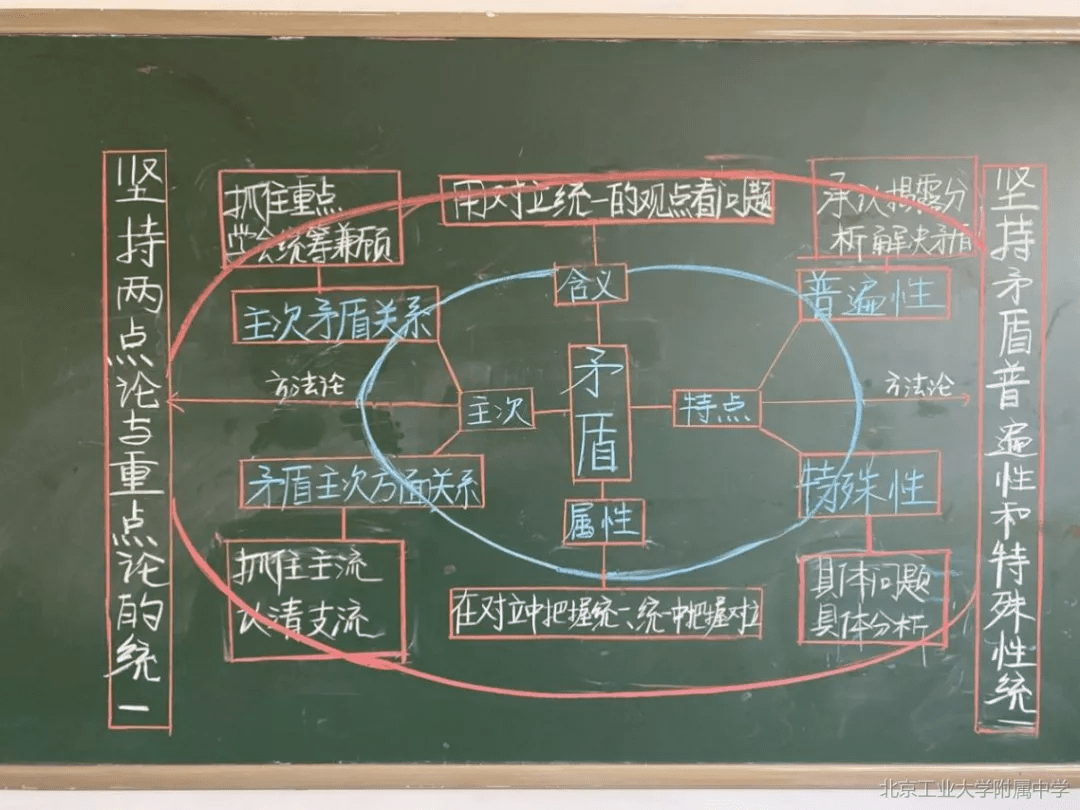 坚持两点论与重点论的统一
抓住重点
学会统筹兼顾
主次矛盾关系
方法论
主次
矛盾主次方面关系
抓住主流
认清支流
用对立统一的观点看问题
含义
矛盾
属性
在对立中把握统一、统一中把握对立
承认揭露分
析解决矛盾
普遍性
特点
方法论
特殊性
具体问题
具体分析
坚持矛盾普遍性和特殊性统一
北京工业大学附属中学